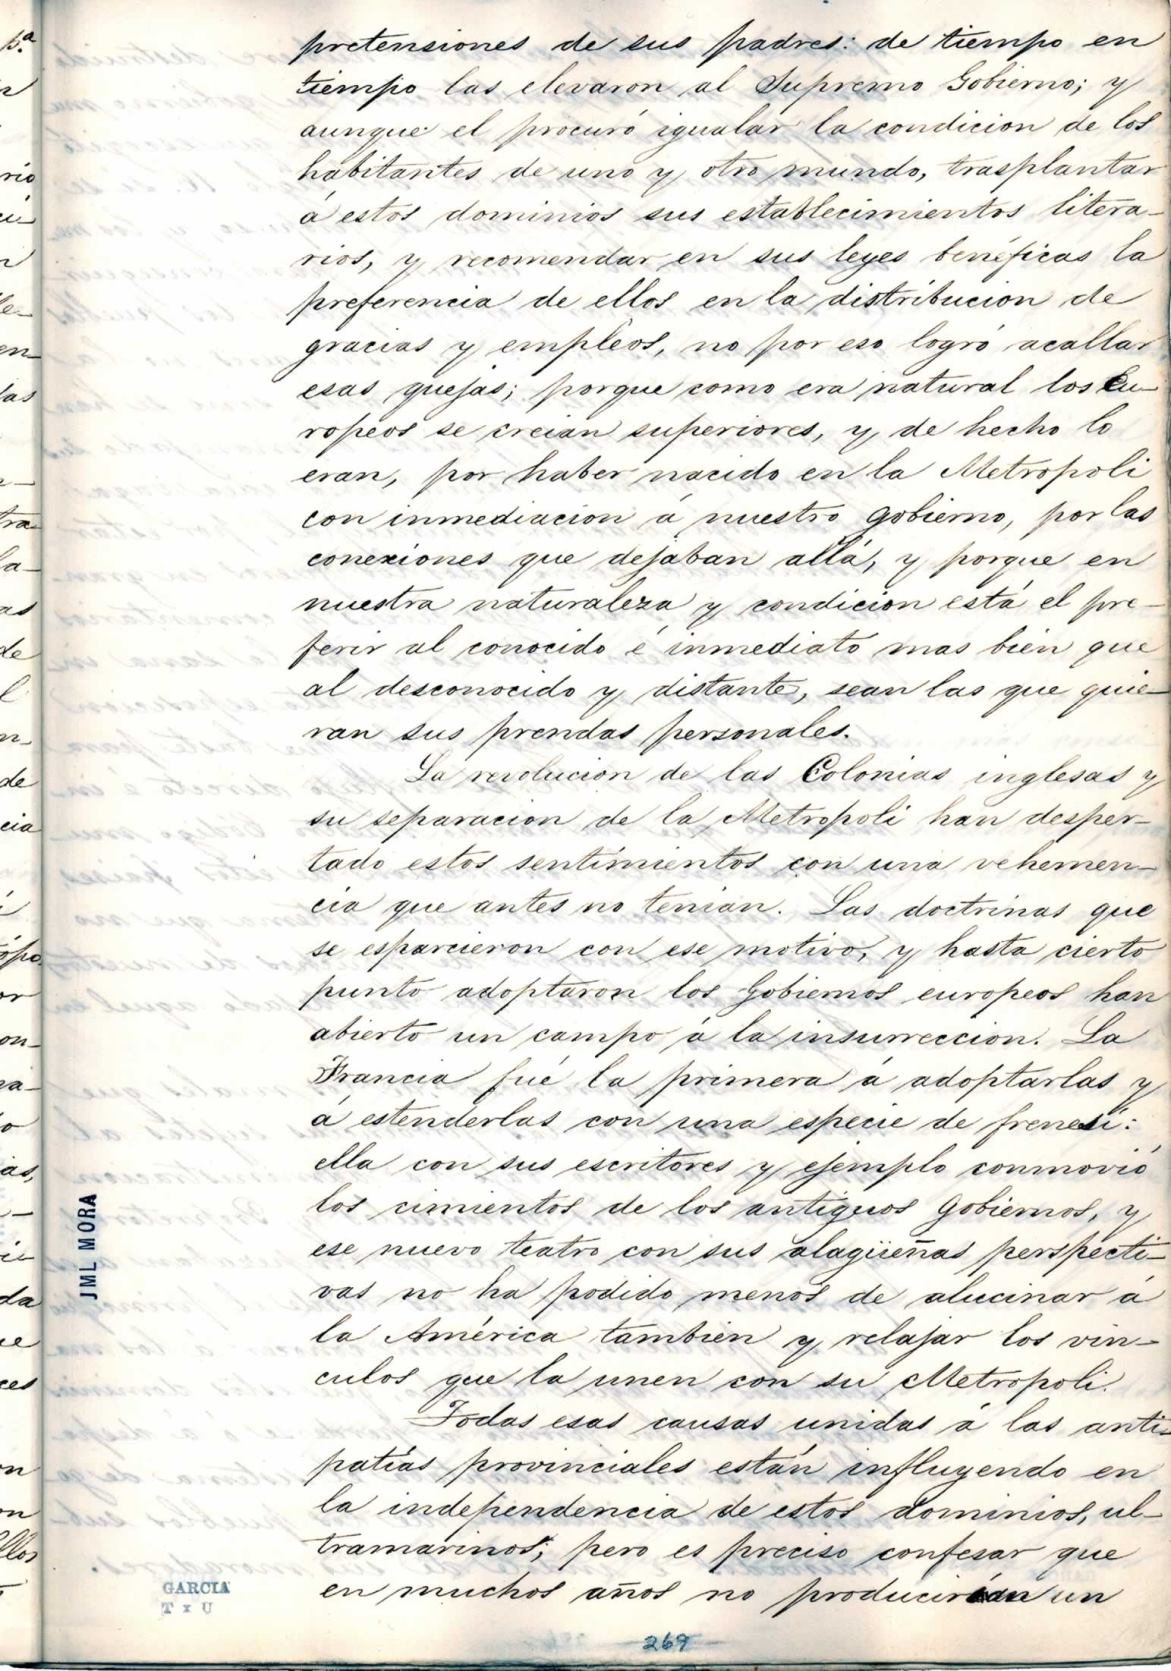 pretensiones de sus padres: de tiempo en
tiempo las elevaron al Supremo Gobierno; y
aunque el procuró igualar la condicion de los
habitantes de uno y otro mundo, trasplantar
á estos dominios sus establecimientos litera-
rios, y recomendar en sus leyes benéficas la
preferencia de ellos en la distribucion de
gracias y empleos, no por eso logró acallar
esas quejas; porque como era natural los Eu-
ropeos se creian superiores, y de hecho lo
eran, por haber nacido en la Metropoli
con inmediacion á nuestro gobierno, por las
conexiones que dejaban allá, y porque en
nuestra naturaleza y condicion está el pre-
ferir al conocido é inmediato mas bien que
al desconocido y distante, sean las que quie-
ran sus prendas personales.
La revolucion de las Colonias inglesas y
su separacion de la Metropoli han desper-
tado estos sentimientos con una vehemen-
cia que antes no tenian. Las doctrinas que
se esparcieron con ese motivo, y hasta cierto
punto adoptaron los Gobiernos europeos han
abierto un campo á la insurreccion. La
Francia fué la primera á adoptarlas y
á estenderlas con una especie de frenesí:
ella con sus escritores y ejemplo conmovió
los cimientos de los antiguos Gobiernos, y
ese nuevo teatro con sus alagüeñas perspecti-
vas no ha podido menos de alucinar á
la América tambien y relajar los vin-
culos que la unen con su Metropoli.
Todas esas causas unidas á las anti-
patías provinciales están influyendo en
la independencia de estos dominios, ul-
tramarinos; pero es preciso confesar que
en muchos años no producirán un
JML MORA
GARCIA
T x U
269